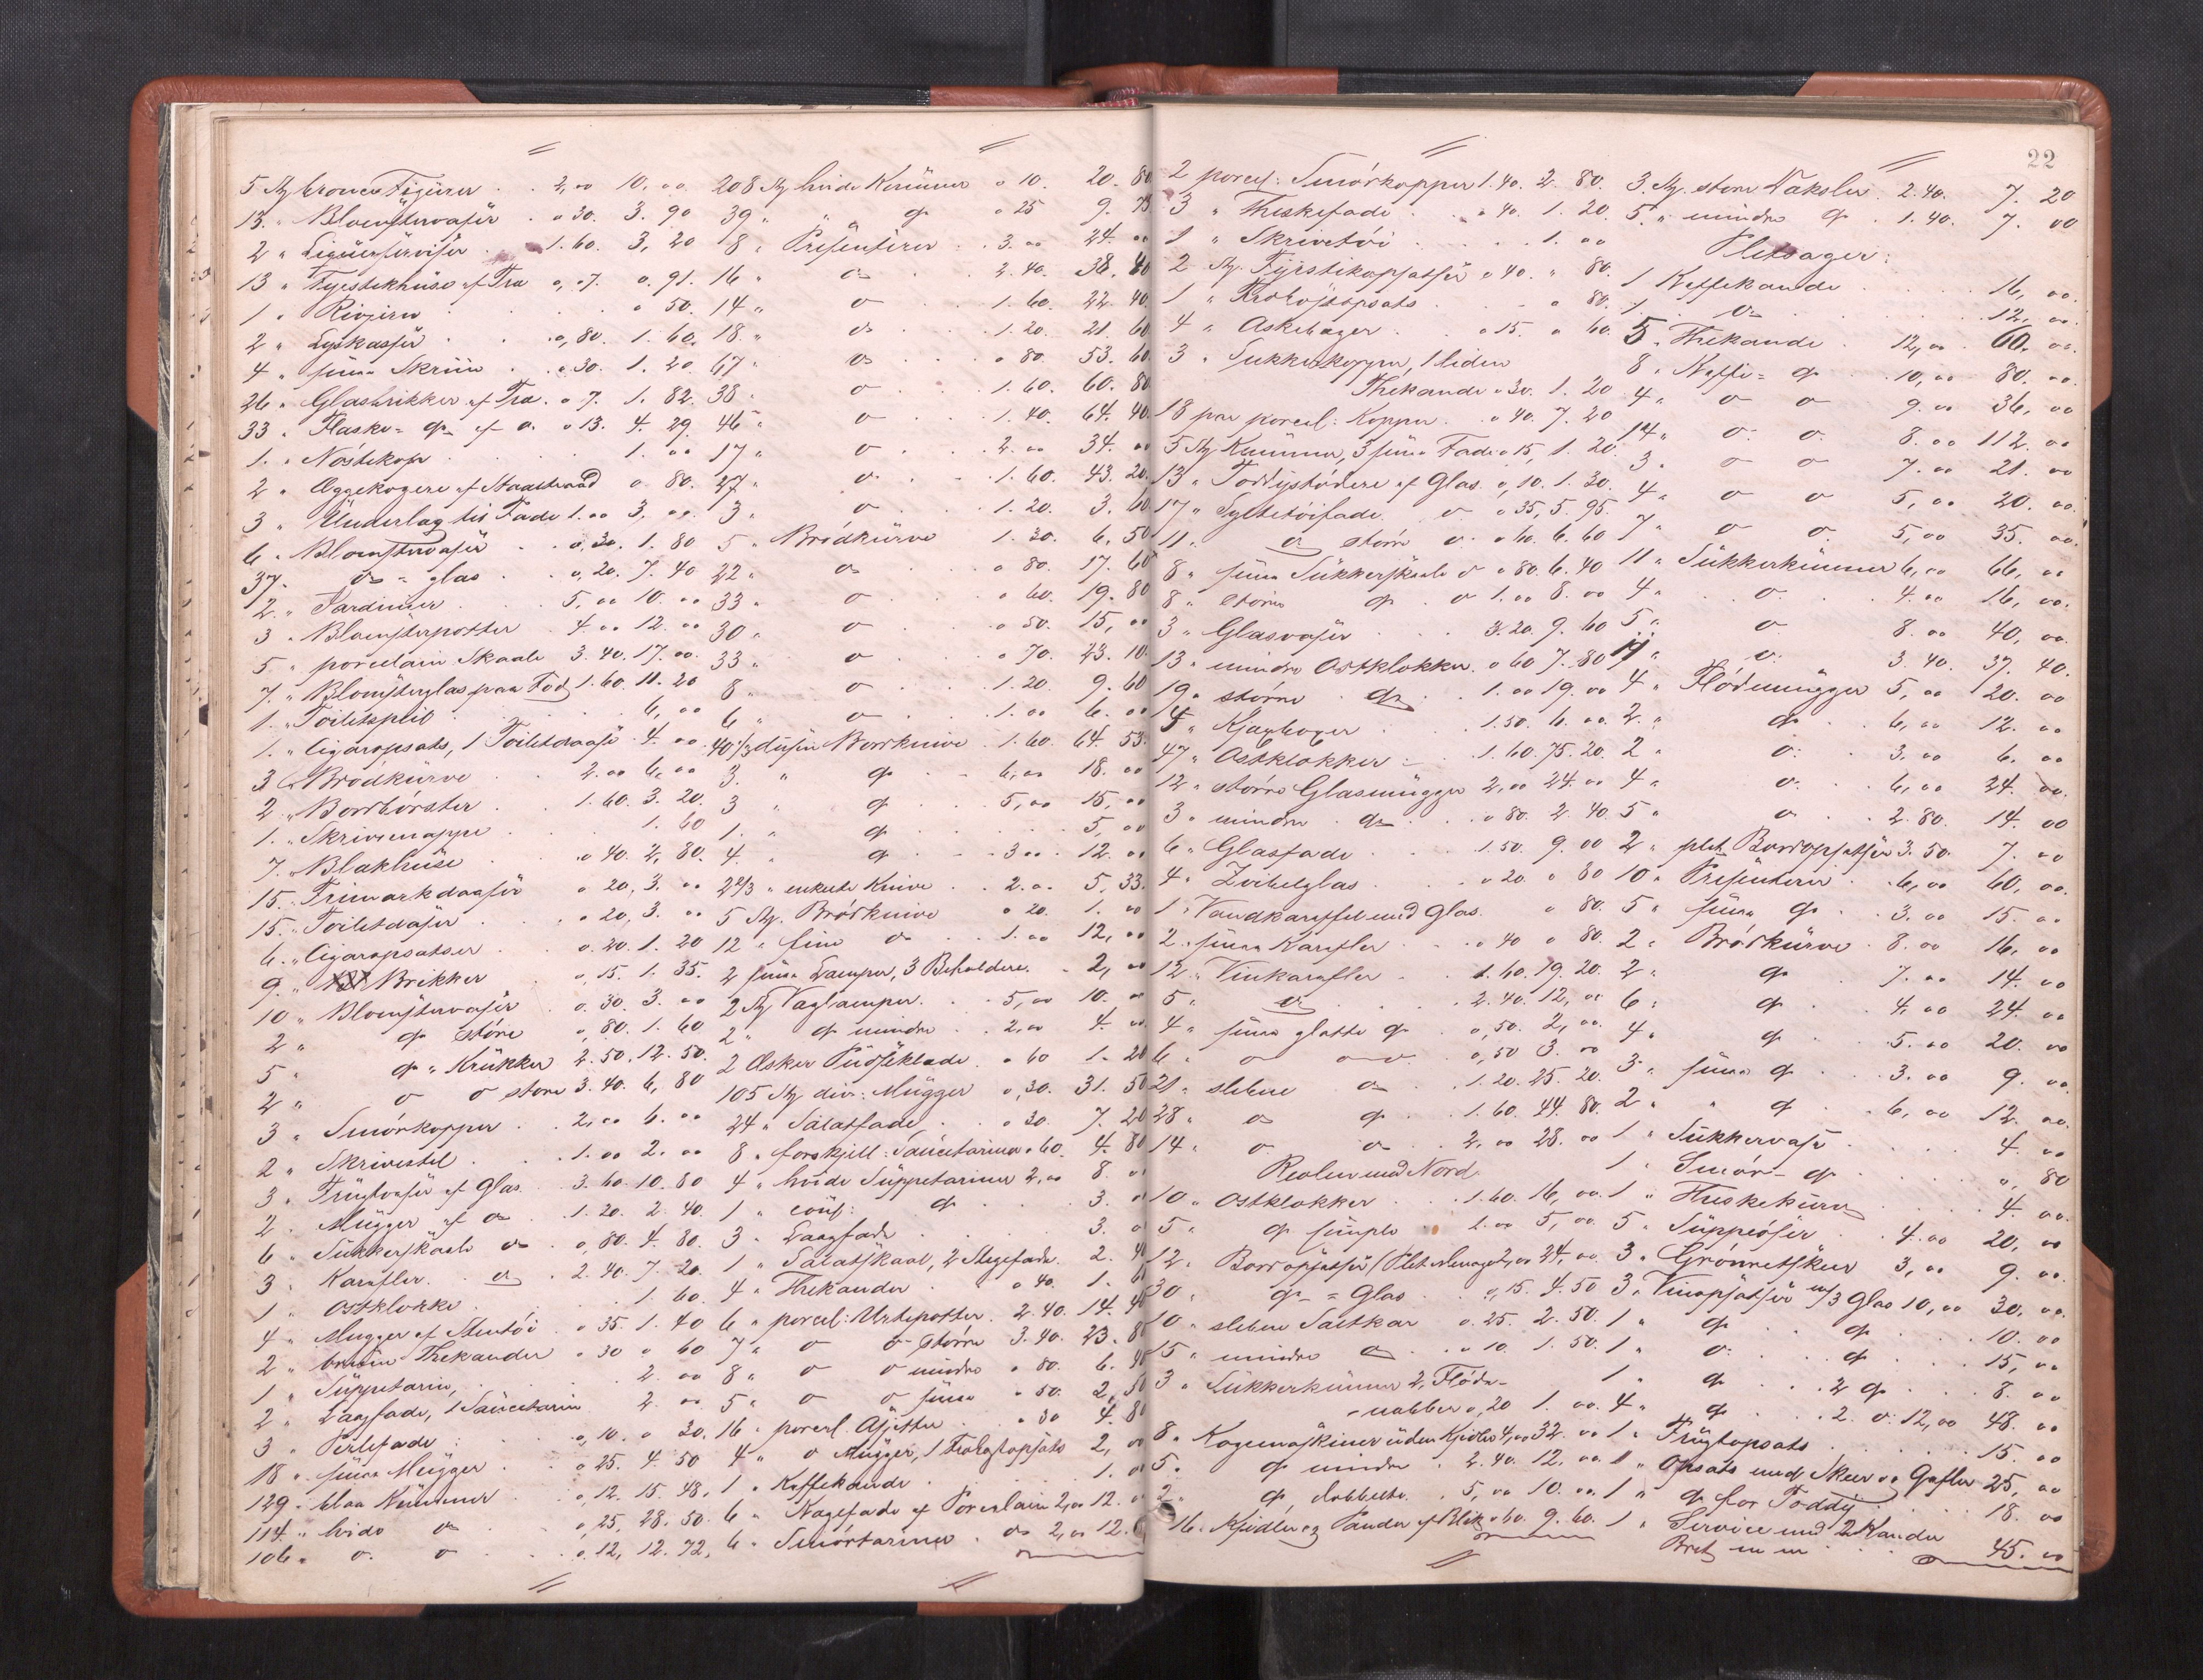 5 St bronce Figürer . . 2,00 10,00
13 " Blomstervaser . " 30. 3. 90
2 " Liqüerserviser . 1. 60. 3, 20
13 " Fyrstikhüse af Træ 0, 07. 0. 91.
1 " Rivjern . . . " 50.
2 " Lyskasser . . 0,80. 1. 60.
4 " smaa Skriin . " 30. 1. 20.
26 " Glasbrikker af Træ . " 7. 1. 82.
33 " Flaske= do af do " 13. 4. 29.
1 " Nöstekop . . . 1. 00
2 " Æggekogere af Staaltraad " 80.
3 " Ünderlag til Fade 1. 00 3, 00.
6 " Blomstervaser . . 0,30. 1. 80
37 " do = glas . . 0,20. 7. 40
2 " Jardinier . . 5, 00 10. 00
3 " Blomsterpotter . 4. 00 12. 00
5 " porcelain Skaale 3. 40. 17. 00.
7 " Blomsterglas paa Fod 1. 60. 11. 20
1 " Toiletspeil . . . 6, 00
1 " Cigaropsats, 1 Toiletdaase . 4. 00
3 " Brödkürve . . 2. 00 6, 00
2 " Bordbörster . . 1. 60. 3. 20.
1 " Skrivemappe . . . 1. 60
7 " Blakhüse . . " 40. 2, 80.
15 " Frimærkdaaser " 20, 3. 00
15 " Toiletdaaser . . " 20, 3. 00
6 " Cigaropsatser . 0. 20. 1. 20
9 " Brikker . . 0, 15. 1. 35.
10 " Blomstervaser . 0. 30. 3. 00
2 " do större . 0, 80. 1. 60
5 " do " Krükker 2. 50. 12. 50.
2 " do do store 3. 40. 6, 80
3 " Smörkopper . . 2,00 6. 00
2 " Skrivestel . . . 1. 00 2. 00
3 " Frügtvaser af Glas . 3. 60. 10. 80
2 " Mügger af do . 1. 20. 2. 40.
6 " Sükkerskaale do . 0, 80. 4. 80.
3 " Karafler . . do . 2. 40. 7. 20.
1 " Ostklokke . . . 1. 60.
4 " Mugger af Stentöi . " 35. 1. 40
2 " brüün Thekander " 30 " 60
1 " Süppeterin, . . . 2. 00
2 " Laagfade, 1 Saüceterin 2. 00
3 " Perlefade . . 0, 10. " 30.
18 " smaa Mügger . . " 25. 4. 50
129 " blaa Kümmer . . 0, 12. 15. 48.
114 " hvide do . . 0, 25, 28. 50.
106 " do do . . 0, 12, 12. 72,
208 St hvide Kümmer " 10. 20. 80
39 " " do " 25 9. 75.
8 " Presenterer . . 3. 00 24. 00
16 " do . . 2. 40. 38. 40
14 " do . . 1. 60. 22. 40.
18 " do . . 1. 20. 21. 60
67 " do . . " 80. 53. 60.
38 " do . . 1. 60. 60. 80
46 " do . . 1. 40. 64. 40.
17 " do . . 2. 00 34. 00
27 " do . . 1. 60. 43. 20.
3 " do . . 1. 20. 3. 60
5 " Brödkürve . 1. 30. 6. 50
22 " do . . " 80. 17. 60
33 " do . . " 60. 19. 80
30 " do . . " 50. 15, 00
33 " do . . " 70. 23. 10.
8 " do . . 1. 20. 9. 60
6 " do . . 1. 00 6. 00
40 1/3 düsin Bordknive . 1. 60. 64. 53.
3. " do . . 6, 00 18. 00
3 " do . . 5, 00 15, 00
1. " do . . . 5, 00
4. " do . . 3 00 . 12. 00
2 2/3 " enkelte Knive . . 2. 00 5, 33.
5 St. Brödknive " 20. 1. 00
12 " fine do . . 1. 00 12, 00
2 smaa Lamper, 3 Beholdere. . 2, 00
2 St Væglamper. . . 5, 00 10. 00
2 " do mindre . . 2. 00 4. 00
2 Æsker . " 60 1. 20
105 St div: Mügger 0, 30. 31. 50
24 " Salatfade, . " 30. 7. 20
8 " forskjell: Saüceteriner " 60. 4. 80
4 " hvide Süppeteriner 2, 00 8. 00
1 " coül: do . . 3. 00
3 " Laagfade . . . 3. 00
1 " Salatskaal, 2 Stegefade . 2. 40
4 " Thekander . . " 40. 1. 60
6 " porcel: Urtepotter . 2. 40. 14. 40
7 " do do större 3. 40. 23. 80
8 " do do mindre " 80. 6. 40
5 " do do smaa " 50. 2, 50
16 " porcel. Asjetter . . " 30 4. 80
4 " do Mügger, 1 Frokostopsats 2, 00
1 " Kaffekande . . . 1. 00
6 " Kagefade af Porcelain 2, 00 12. 00
6 " Smörteriner . do 2, 00 12. 00
22
2 porcel: Smörkopper 1. 40. 2. 80.
3 " Fleskefade . . " 40. 1. 20.
1 " Skrivetöi . . . 1. 00
2 St. Fyrstikopsatser " 40. " 80.
1 " Frokostopsats . . " 80.
4 " Askebæger . . " 15. " 60.
3 " Sukkerkopper, 1 liden
Thekande " 30. 1. 20
18 par porcel: Kopper . " 40. 7. 20
5 St Kummer, 3 smaa Fade " 15, 1. 20.
13 " Toddystödere af Glas. 0, 10. 1. 30.
17 " Syltetöifade do " 35, 5. 95.
11 " do större do " 60. 6. 60
8 " smaa Sükkerskaale do " 80. 6. 40
8 " större do . do 1. 00 8. 00
3 " Glasvaser . . 3. 20. 9. 60
13 " mindre Ostklokker . " 60 7. 80
19 " större . do . 1. 00 19. 00
4 " Kjaxboxer . . 1. 50. 6. 00.
47 " Ostklokker . . 1. 60. 75. 20.
12 " större Glasmügger 2, 00 24. 00
3 " mindre . do . " 80. 2. 40.
6 " Glasfade . . 1. 50. 9. 00
4 " Zvibelglas . . " 20 " 80
1 " Vandkaraffel med Glas . " 80.
2 " smaa Karafler . " 40 " 80.
12 " Vinkarafler . . 1. 60. 19. 20.
5 " do . . 2. 40. 12, 00
4 " smaa glatte do . 0, 50. 2, 00.
6 " do do . 0, 50 3. 00
21 " slebne do . 1. 20. 25. 20.
28 " do do . 1. 60. 44. 80.
14 " do do . 2. 00 28. 00
Reolen mod Nord
10 " Ostklokker . . 1. 60. 16, 00.
5 " do simple . 1. 00 5, 00.
12 " Bordopsatser (Plet Menager 2, 00 24, 00
30 " do = Glas . . 0, 15. 4. 50
10 " slebne Saltkar 0. 25. 2. 50.
15 " mindre do . . " 10. 1. 50.
3 " Sükkerkümmer 2, Flöde-
nabber 0, 20 1. 00.
8 " Kogemaskiner üden Kjedler 4, 00 32. 00
5 " do mindre . 2. 40. 12. 00
2 " do dobbelte . 5, 00 10. 00
16 " Kjedler og Pander af Blik " 60. 9. 60.
3. St. store Vaksler . 2. 40. 7. 20
5. " mindre do . 1. 40. 7. 00
Pletsager:
1 Kaffekande . . . 16, 00.
1 " do . . . 12, 00.
5 " Thekande . 12, 00 . 60. 00.
8 " Kaffe = do . 10, 00 80. 00.
4 " do do 9. 00 36, 00
14 " do do 8. 00 112. 00
3 " do do 7. 00 21. 00
4 " do do 5, 00 20. 00
7 " do do 5, 00 35. 00.
11 " Sükkerkümmer 6, 00 66, 00
4 " do . . 4. 00 16, 00.
5 " do . . 8. 00 40, 00.
11 " do . . 3. 40. 37. 40.
4 " Flödemügger 5, 00 20. 00
2. " do . . 6, 00 12. 00
2 " do . . 3. 00 6. 00
4 " do . . 6, 00 24. 00.
5 " do . . 2. 80. 14. 00
2 " plet Bordopsatser 3. 50. 7. 00
10 " Presenterer . . 6, 00 60, 00.
5 " smaa do . . 3. 00 15. 00
2 " Brödkürve . 8. 00 16, 00
2 " do . . 7. 00 14. 00
6 " do . . 4, 00 24. 00
4 " do . . 5. 00 20. 00
3 " smaa do . . 3. 00 9. 00.
2 " " do . . 6, 00 12. 00.
1 " Sükkervase . . . 4. 00
1 " Smör- do . . . 0, 80
1 " Fleskekurv . . . 4. 00.
5 " Süppeöser . . 4. 00 20, 00
3 " Grönnetskeer 3, 00 9. 00.
3 " Vinopsatser m/ 3 Glas 10, 00 30. 00.
1 " do . . do . . 10. 00
1 " do . . do . . 15, 00
1 " do . . 2 do . . 8. 00
4 " do . . 2. do 12, 00 48. 00
1 " Frügtopsats . . . 15. 00
1 " Opsats med Skeer og Gafler 25, 00
1 " do for Toddy . . . 18. 00
1 " Service med 2 Kander
Bret m m . . . 45. 00